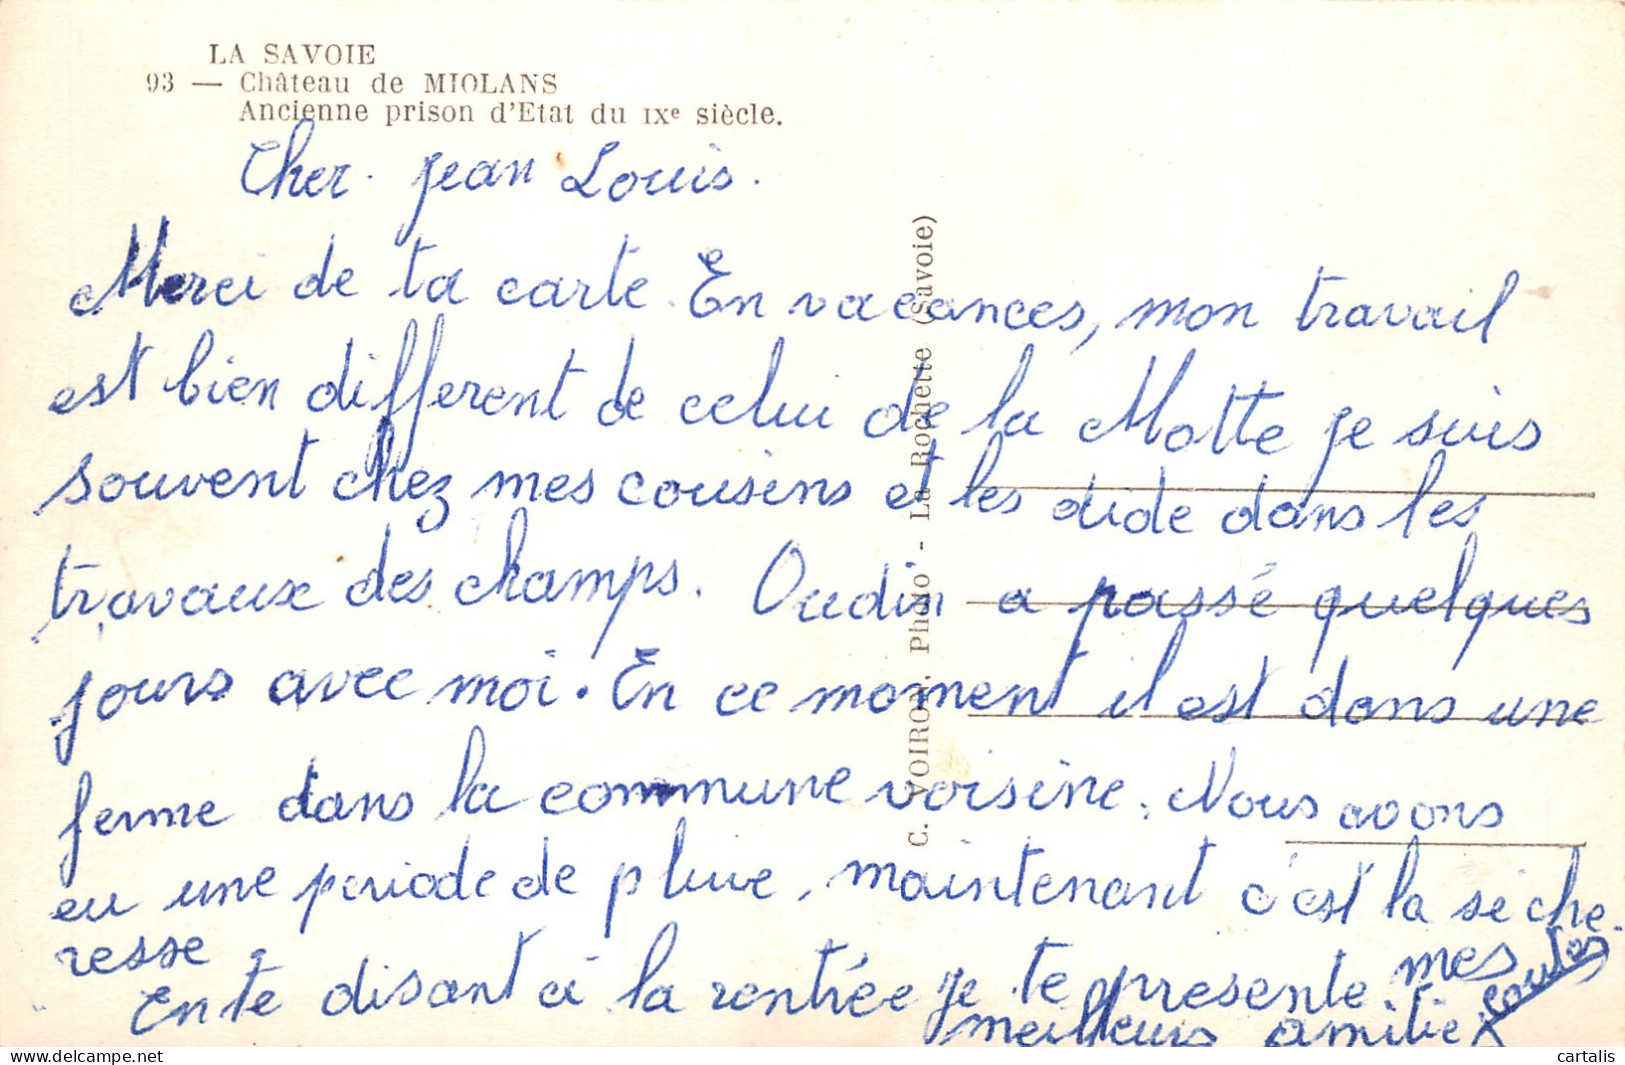 LA SAVOIE
93 — Château de MIOLANS
Ancienne prison d'Etat du IXe siècle.
Cher Jean Louis.
Merci de ta carte. En vacances, mon travail
est bien different de celui de la Motte je suis
souvent chez mes cousins et les aide dans les
travaux des champs. Oudin a passé quelques
jours avec moi. En ce moment il est dans une
ferme dans la commune voisine. Nous avons
eu une periode de pluie, maintenant c'est la séche
resse.
En te disant à la rentrée je te presente mes
meilleurs amitie
C. VOIRON. Photo - La Rochette (Savoie)
cartalis